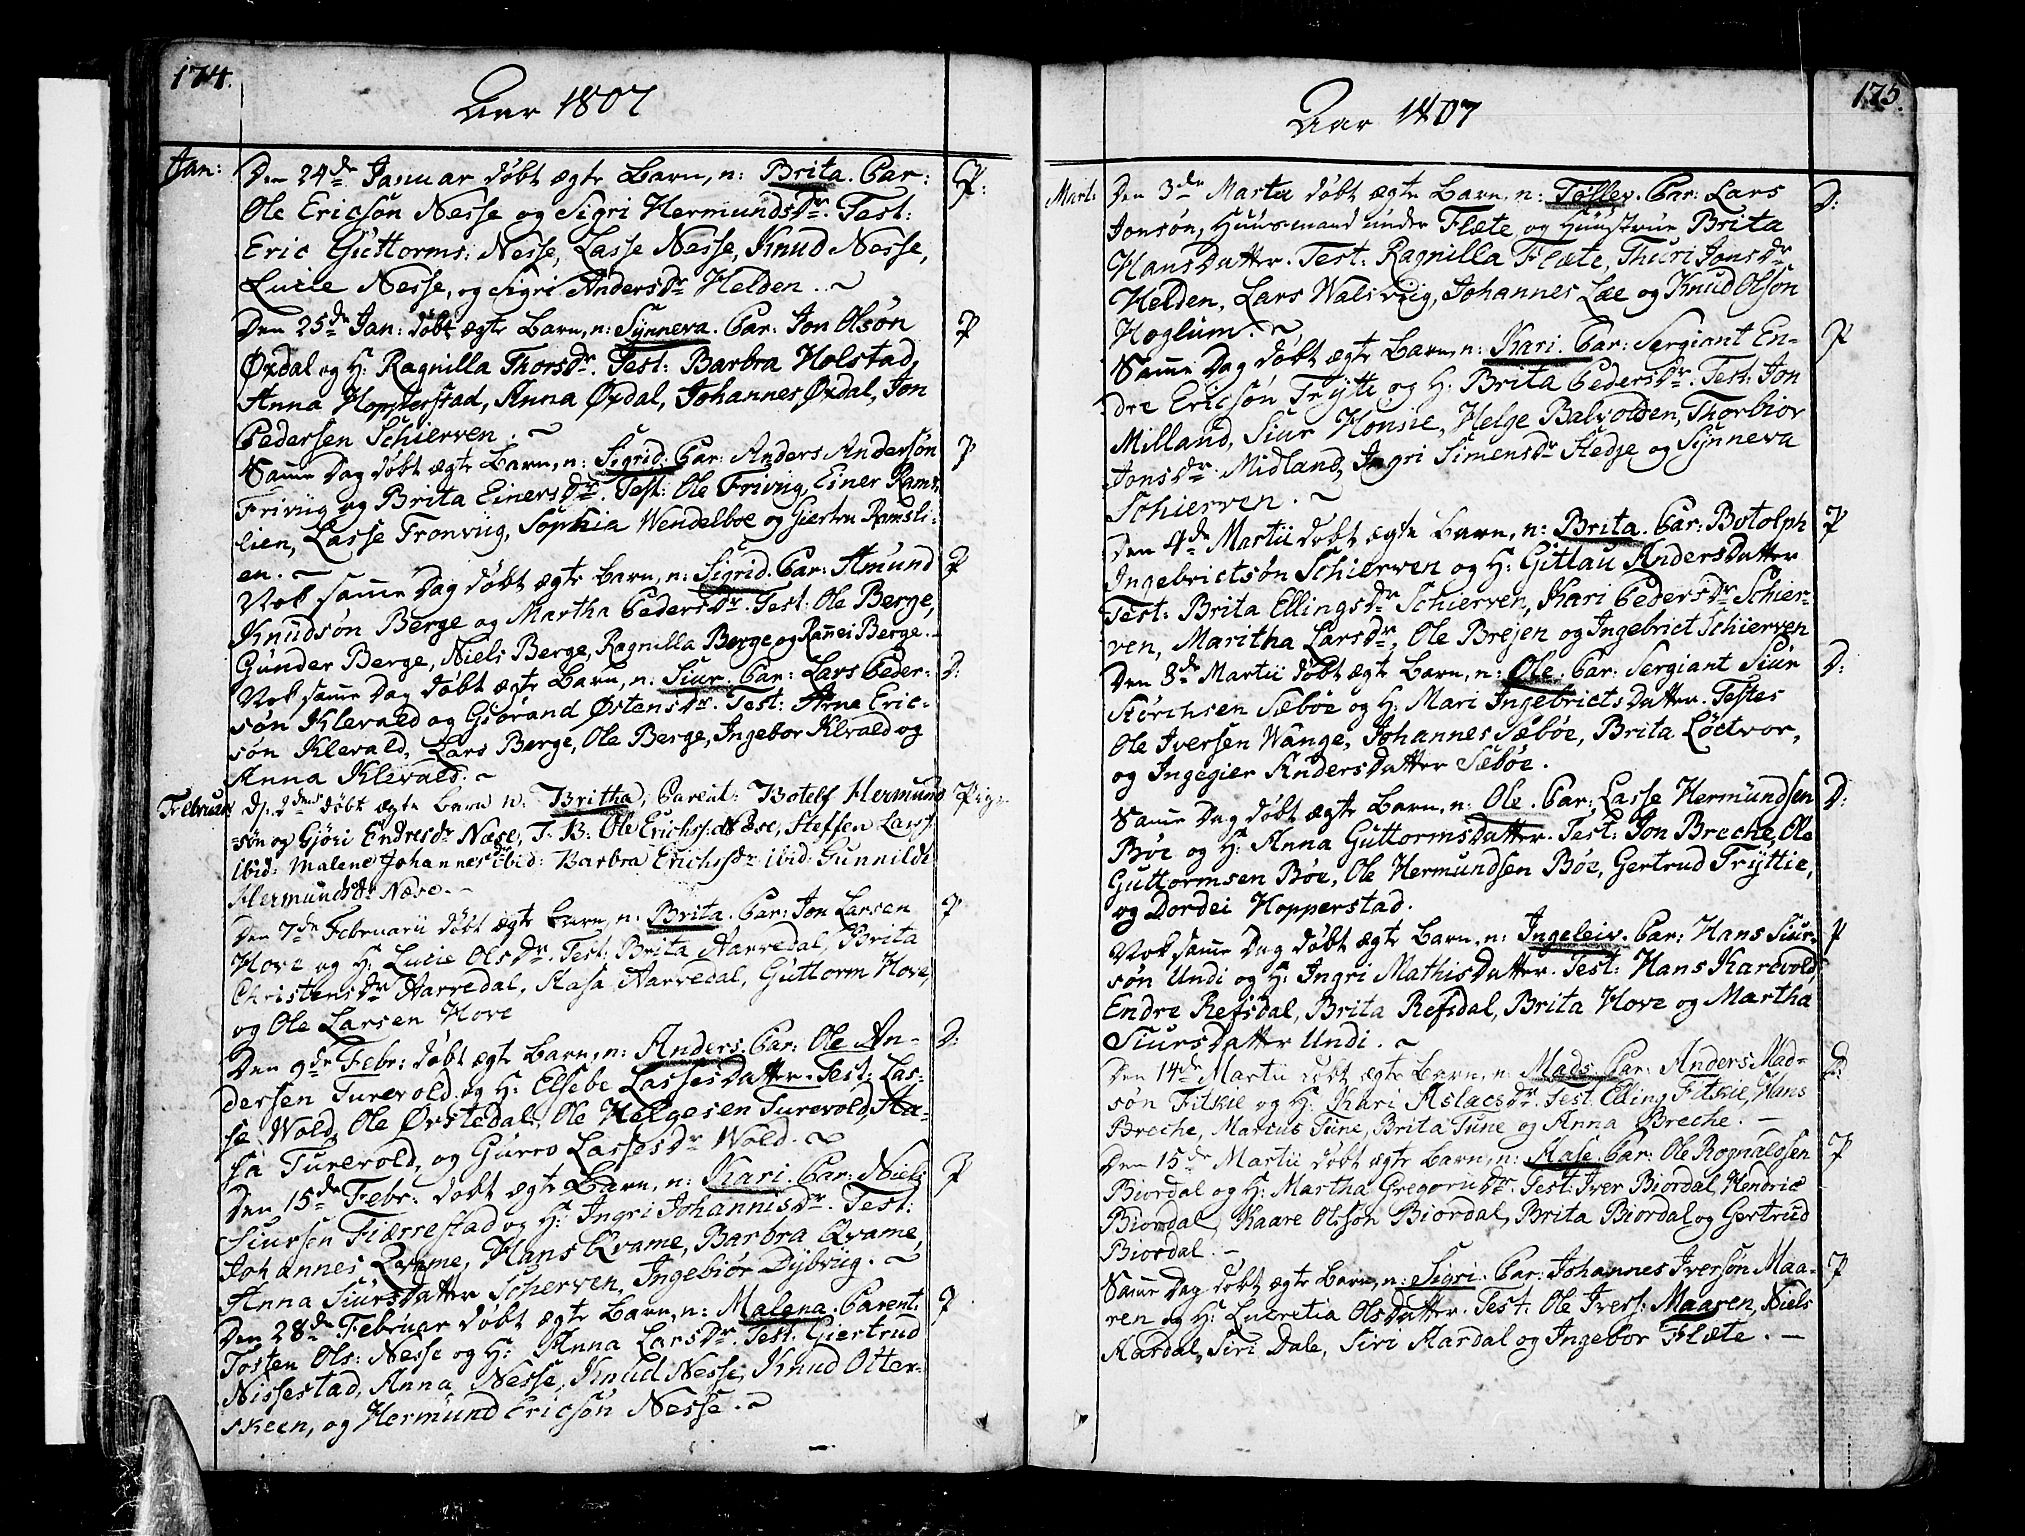 174.
Aar 1807
Jan: Den 24de Januar döbt ægte Barn, n: Brita. Par: P:
Ole Ericsön Nesse og Sigri Hermundsdr. Test:
Eric Guttorms: Nesse, Lasse Nesse, Knud Nesse,
Lucie Nesse, og Sigri Andersdr Helden. ~
Den 25de Jan: döbt ægte Barn, n: Synneva. Par: Jon Olsön P
Øxdal og H: Ragnilla Thorsdr. Test: Barbra Holstad,
Anna Hopperstad, Anna Øxdal, Johannes Øxdal, Jon
Pedersen Schierven. ~
Samme Dag döbt ægte Barn, n: Sigrid. Par: Anders Andersön P
Frivüg og Brita Einersdr. Test: Ole Frivüg, Einer Rams-
lien, Lasse Fronvüg, Sophia Wendelboe og Giertru Ramsli-
en. ~
Nok samme Dag döbt ægte Barn, n: Sigrid. Par: Amund P
Knudsön Berge og Martha Pedersdr. Test: Ole Berge,
Gunder Berge, Niels Berge, Ragnilla Berge og Rannei Berge.
Nok samme Dag döbt ægte Barn, n: Siur. Par: Lars Peder- D:
sön Klevald og Giörand Østensdr. Test: Arne Eric-
sön Klevald, Lars Berge, Ole Berge, Ingebor Klevald og
Anna Klevald. ~
Februar D. 2den döbt ægte Barn n: Britha, Parent: Botelf Hermund Pige
sön og Gjöri Endresdr Næse, T. B. Ole Erichs. Næse, Steffen Lars.
ibid: Malene Johannesdr ibid: Barbra Erichsdr ibid: Gunnilde
Hermundsdr Næse. -
Den 7de Februarii döbt ægte Barn, n: Brita. Par: Jon Larsen P
Hove og H: Lucie Olsdr. Test: Brita Aarredal, Brita
Christensdr Aarredal, Aasa Aarredal, Guttorm Hove,
og Ole Larsen Hove
Den 9de Febr: döbt ægte Barn, n: Anders. Par: Ole An- D:
dersen Turevold og H: Elsebe Lassesdatter. Test: Las-
se Wold, Ole Ørstedal, Ole Helgesen Turevold, Aa-
sa Turevold, og Gurro Lassesdr Wold. ~
Den 15de Febr: döbt ægte Barn, n: Kari. Par: Niels P
Siursen Fiærrestad og H: Ingri Johannisdr. Test:
Johannes Qvame, Hans Qvame, Barbra Qvame,
Anna Siursdatter Scherven, Ingebiör Dybvüg. ~
Den 28de Februar döbt ægte Barn, n: Malena. Parent: P
Tosten Ols: Nesse og H: Anna Larsdr. Test: Giertrud
Nissestad, Anna Nesse, Knud Nesse, Knud Otter-
skeen, og Hermund Ericsön Nesse. ~
175.
Aar 1807
Mart: Den 3de Martii döbt ægte Barn, n: Tollev. Par: Lars D:
Jonsön, Huusmand under Flæte, og Huustrue Brita
Hansdatter. Test: Ragnilla Flæte, Thuri Jonsdr
Helden, Lars Walsvüg, Johannes Lae og Knud Olsön
Hoglum. ~
Samme Dag döbt ægte Barn, n: Kari. Par: Sergiant En- P
dre Ericsön Trytte og H: Brita Pedersdr. Test: Jon
Milland, Siur Honsie, Helge Balvolden, Thorbior
Jonsdr. Midland, Ingri Simensdr Hedje og Synneva
Schierven. ~
Den 4de Martii döbt ægte Barn, n: Brita. Par: Botolph P
Ingebrictsön Schierven og H: Gitlau Andersdatter
Test: Brita Ellingsdr Schierven, Kari Pedersdr Schier-
ven, Maritha Larsdr, Ole Brejen og Ingebrict Schierven
Den 8de Martii döbt ægte Barn, n: Ole. Par: Sergiant Siur D:
Störchsen Sæböe og H: Mari Ingebrictsdatter. Testes
Ole Iversen Wange, Johannes Sæböe, Brita Lödtvor,
og Ingegier Andersdatter Sæböe.
Samme Dag döbt ægte Barn, n: Ole. Par: Lasse Hermundsen D:
Böe og H: Anna Guttormsdatter. Test: Jon Breche, Ole
Guttormsen Böe, Ole Hermundsen Böe, Gertrud Tryttie,
og Dordei Hopperstad.
Nok samme Dag döbt ægte Barn, n: Ingeleiv. Par: Hans Siur- P
sön Undi og H: Ingri Mathisdatter. Test: Hans Karevold,
Endre Refsdal, Brita Refsdal, Brita Hove og Martha
Siursdatter Undi. ~
Den 14de Martii döbt ægte Barn, n: Mads. Par: Anders Mad- D:
sön Fitskie og H: Kari Aslacsdr. Test: Elling Fitskie, Hans
Breche, Marcus Tune, Brita Tune og Anna Breche. -
Den 15de Martii döbt ægte Barn, n: Aase. Par: Ole Rognaldsen P
Biordal og H: Martha Gregoriidr. Test: Iver Biordal, Hendric
Biordal, Kaare Olsson Biordal, Brita Biordal og Gertrud
Biordal. -
Samme Dag döbt ægte Barn, n: Sigri. Par: Johannes Iversön Maa- P
ren og H: Lucretia Olsdatter. Test: Ole Ivers: Maaren, Niels
Aardal, Siri Dale, Siri Aardal og Ingebor Flæte. -